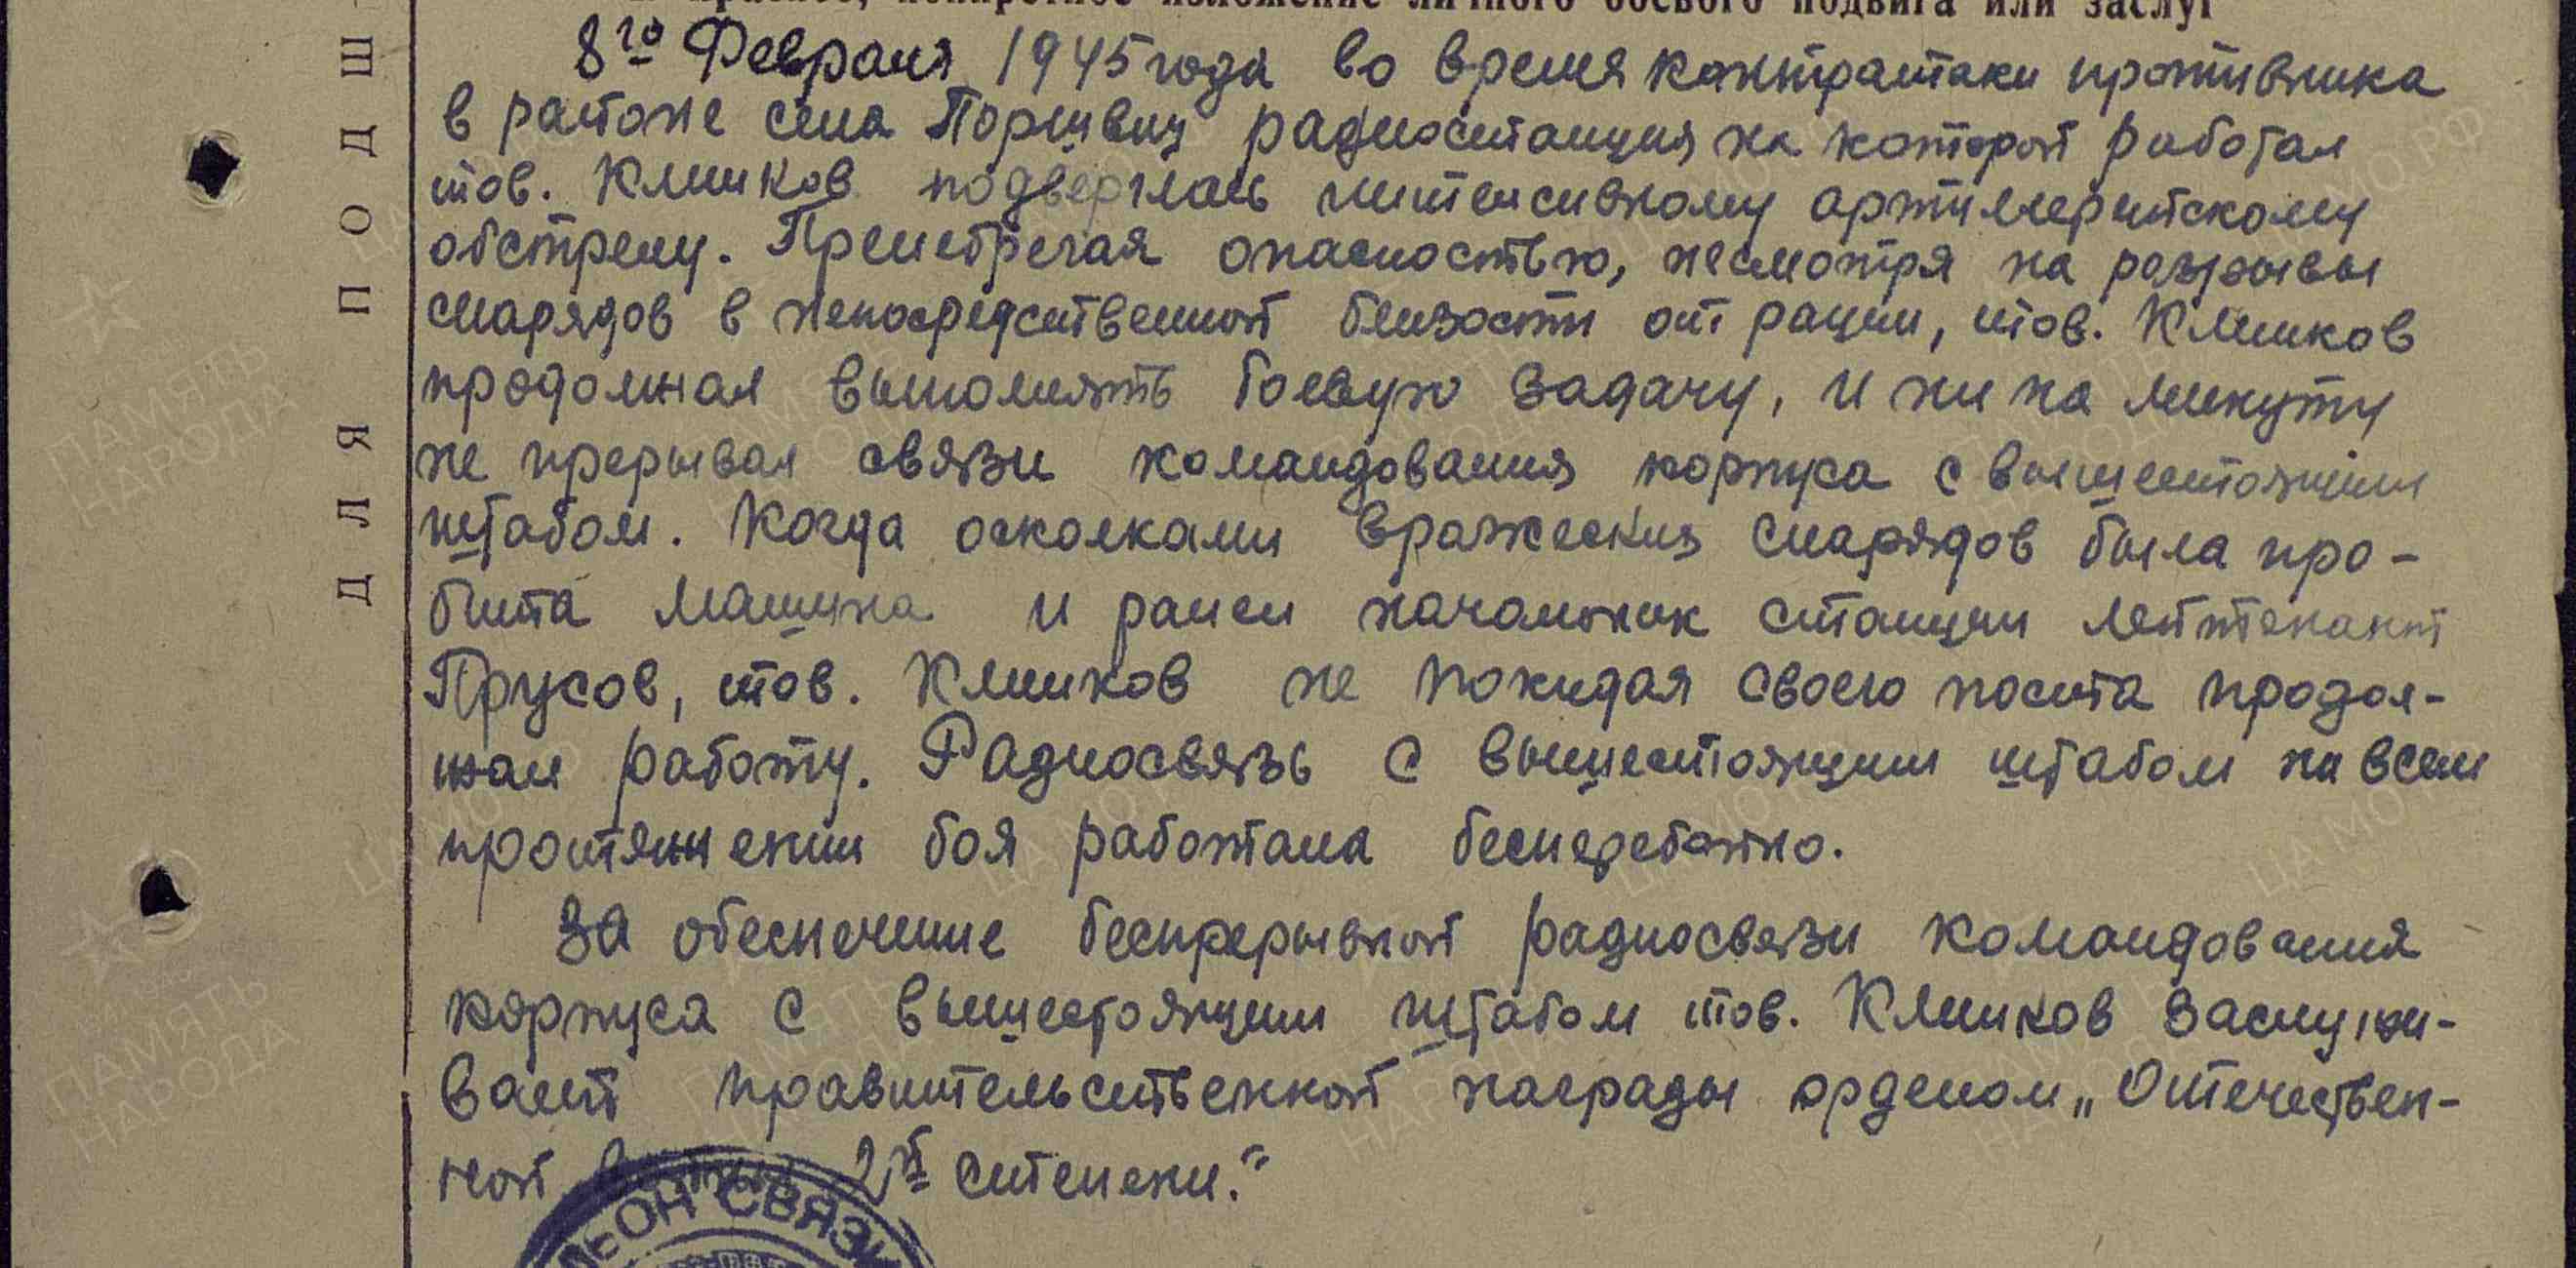 I. Краткое, конкретное изложение личного боевого подвига или заслуг
8го Февраля 1945 года во время контратаки противника
в районе села радиостанция на которой работал
тов. Климков подверглась интенсивному артиллерийскому
обстрелу. Пренебрегая опасностью, несмотря на разрывы
снарядов в непосредственной близости от рации, тов. Климков
продолжал выполнять боевую задачу, и ни на минуту
не прерывал связи командования корпуса с вышестоящим
штабом. Когда осколками вражеских снарядов была про-
бита машина и ранен начальник станции лейтенант
Прусов, тов. Климков не покидая своего поста продол-
жал работу. Радиосвязь с вышестоящим штабом на всем
протяжении боя работала бесперебойно.
За обеспечение беспрерывной радиосвязи командования
корпуса с вышестоящим штабом тов. Климков заслужи-
вает правительственной награды орденом „Отечествен-
ной войны 2й степени."
ЬОН СВЯЗИ
ДЛЯ ПОДШ
ПАМЯТЬ
НАРОДА
ЦА МО РФ